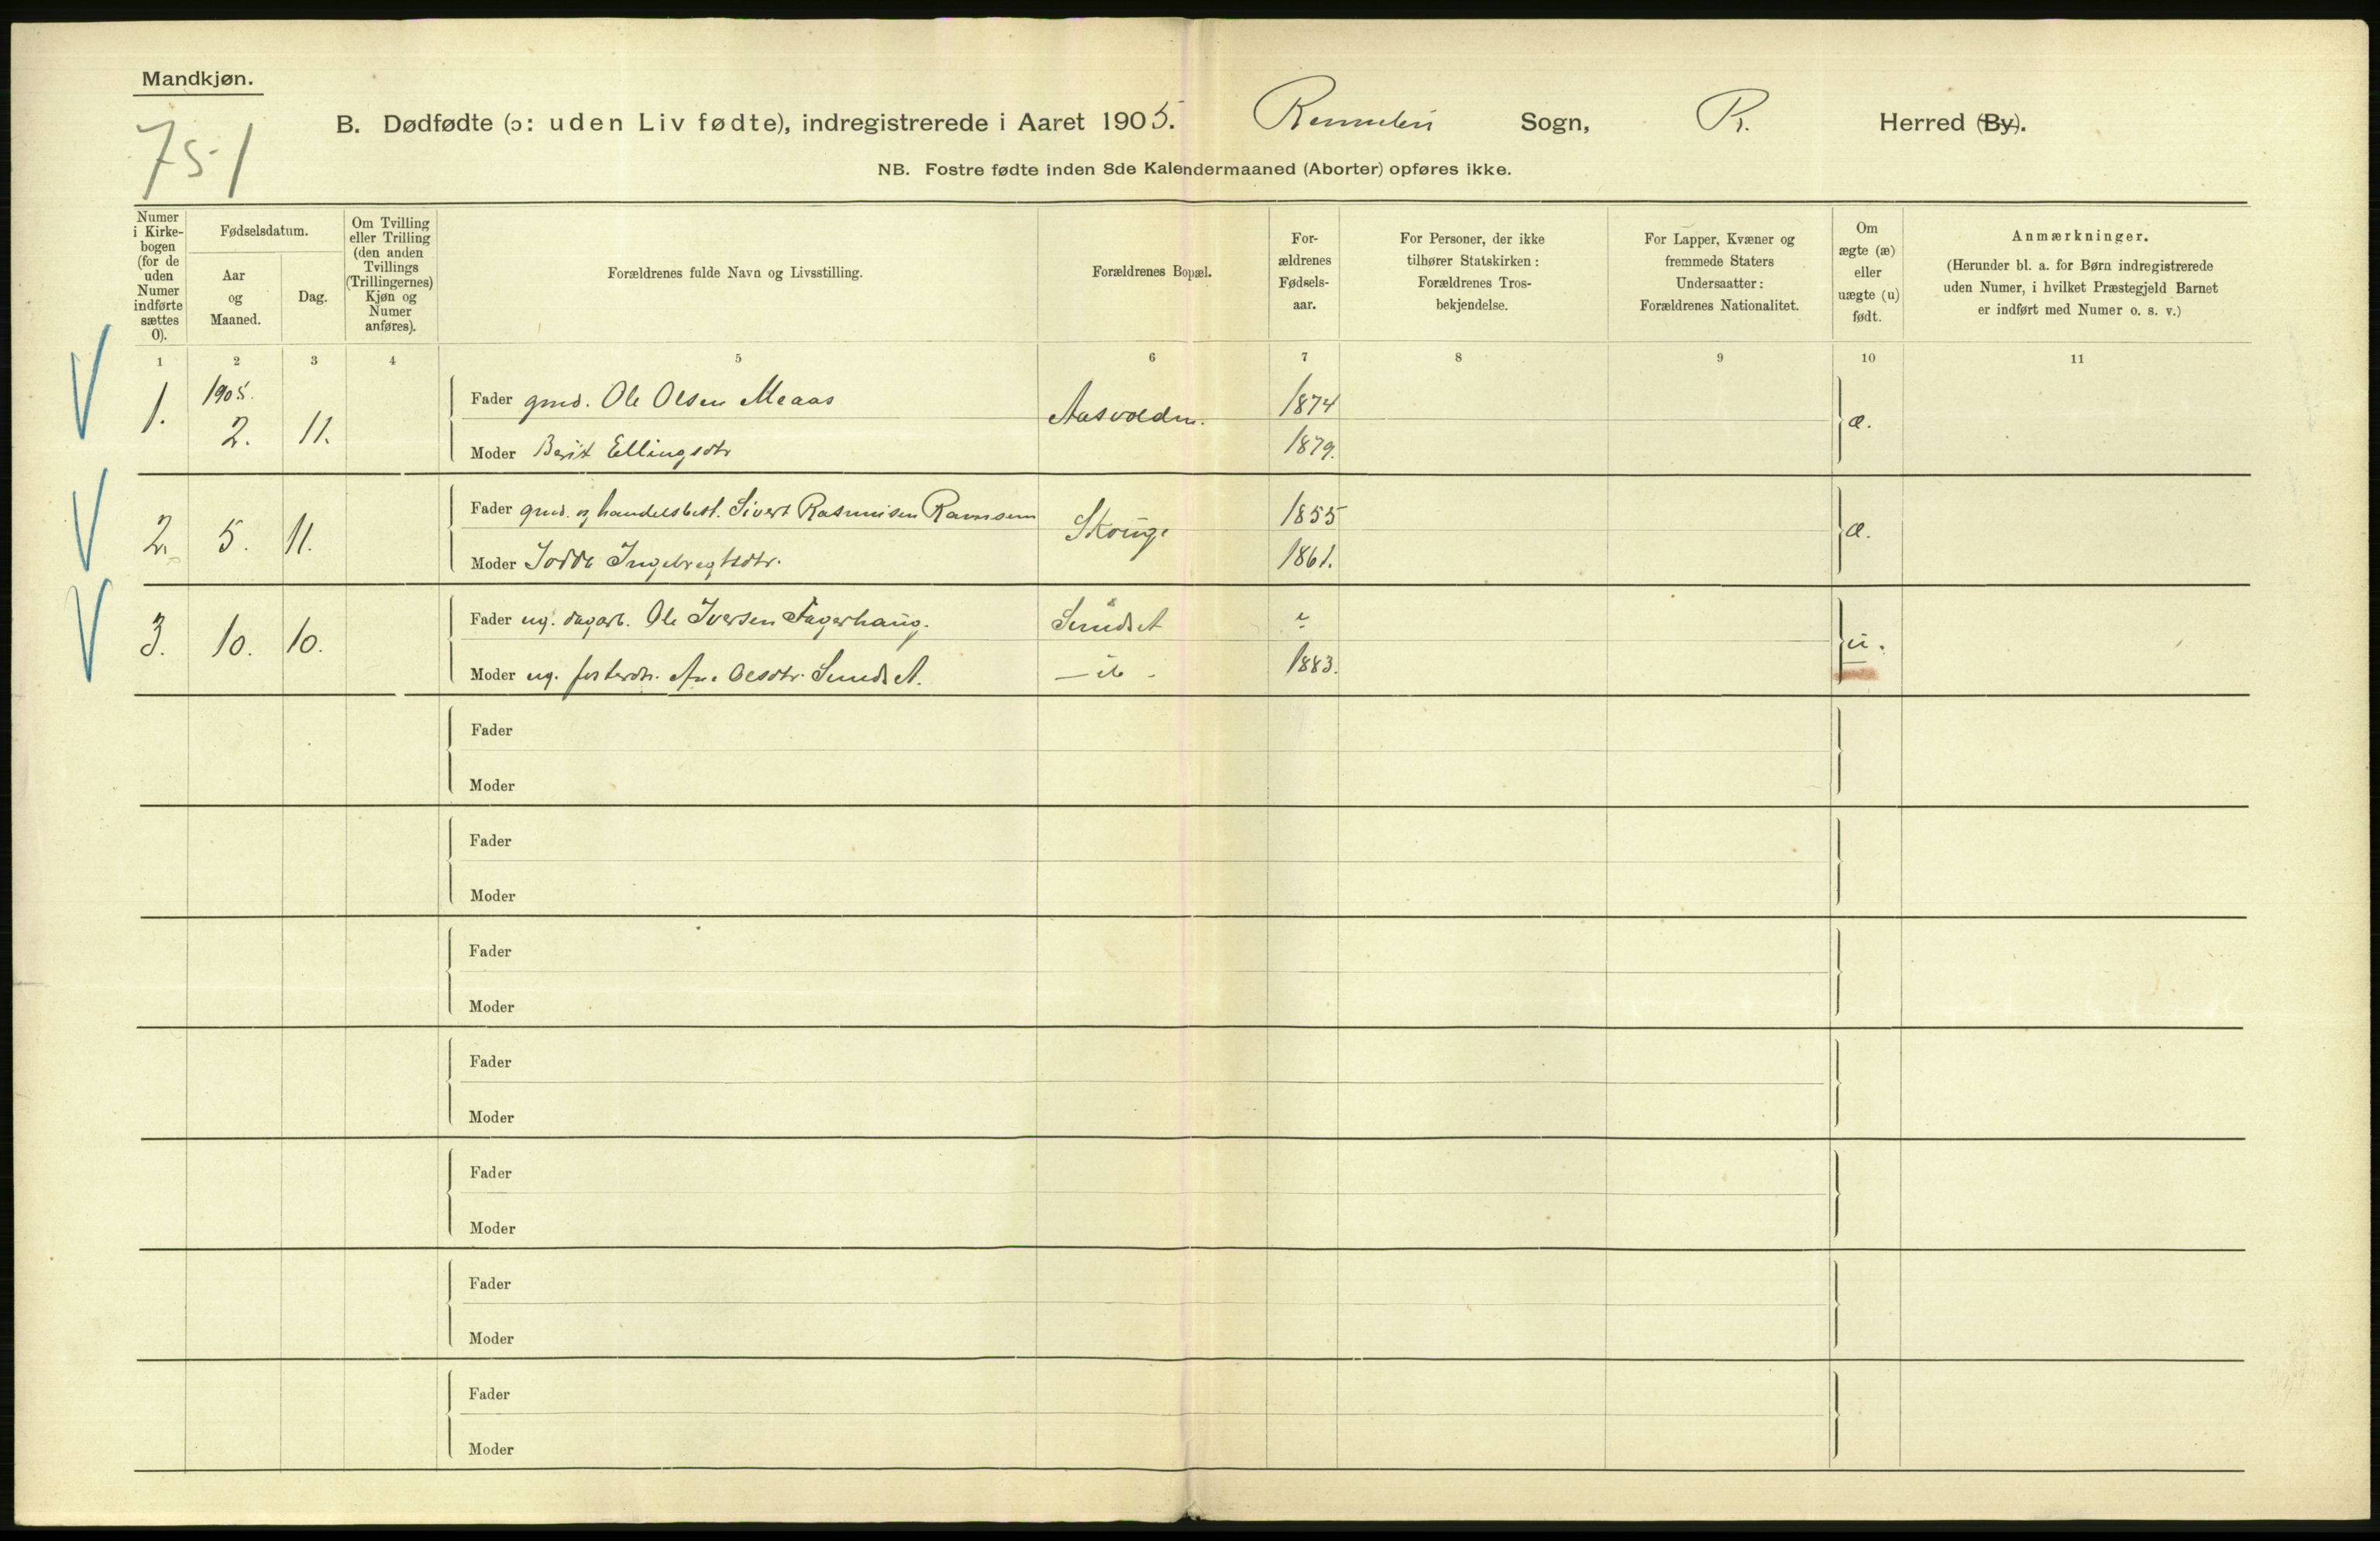 Mandkjøn.
751
B. Dødfødte (ɔ: uden Liv fødte), indregistrerede i Aaret 1905. Rennebu Sogn, R. Herred (By).
NB. Fostre fødte inden 8de Kalendermaaned (Aborter) opføres ikke.
Numer i Kirke-bogen (for de uden Numer indførte sættes 0).
Fødselsdatum.
Aar og Maaned.
Dag.
Om Tvilling eller Trilling (den anden Tvillings (Trillingernes) Kjøn og Numer anføres).
Forældrenes fulde Navn og Livsstilling.
Forældrenes Bopæl.
For-ældrenes Fødsels-aar.
For Personer, der ikke tilhører Statskirken: Forældrenes Tros-bekjendelse.
For Lapper, Kvæner og fremmede Staters Undersaatter: Forældrenes Nationalitet.
Om ægte (æ) eller uægte (u) født.
Anmærkninger.
(Herunder bl. a. for Børn indregistrerede uden Numer, i hvilket Præstegjeld Barnet er indført med Numer o. s. v.)
1 2 3 4 5 6 7 8 9 10 11
1. 1905. 2. 11. Fader gmd. Ole Olsen Meaas Aasvolden. 1874 æ.
Moder Berit Ellingsdtr 1879.
2. 5. 11. Fader gmd. og handelsbest. Sivert Rasmusen Ramsem Skouge 1855 æ.
Moder Jodde Ingebregtsdtr. 1861.
3. 10. 10. Fader ug. dagarb. Ole Iversen Fagerhaug. Sundset u.
Moder ug. fosterdtr. Ane Olsdtr. Sundset. 1883.
Fader
Moder
Fader
Moder
Fader
Moder
Fader
Moder
Fader
Moder
Fader
Moder
Fader
Moder